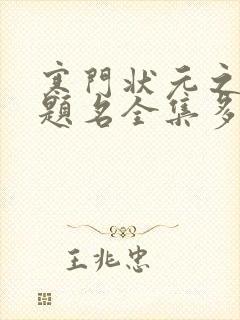 寒門狀元之
題名全集多
王兆忠